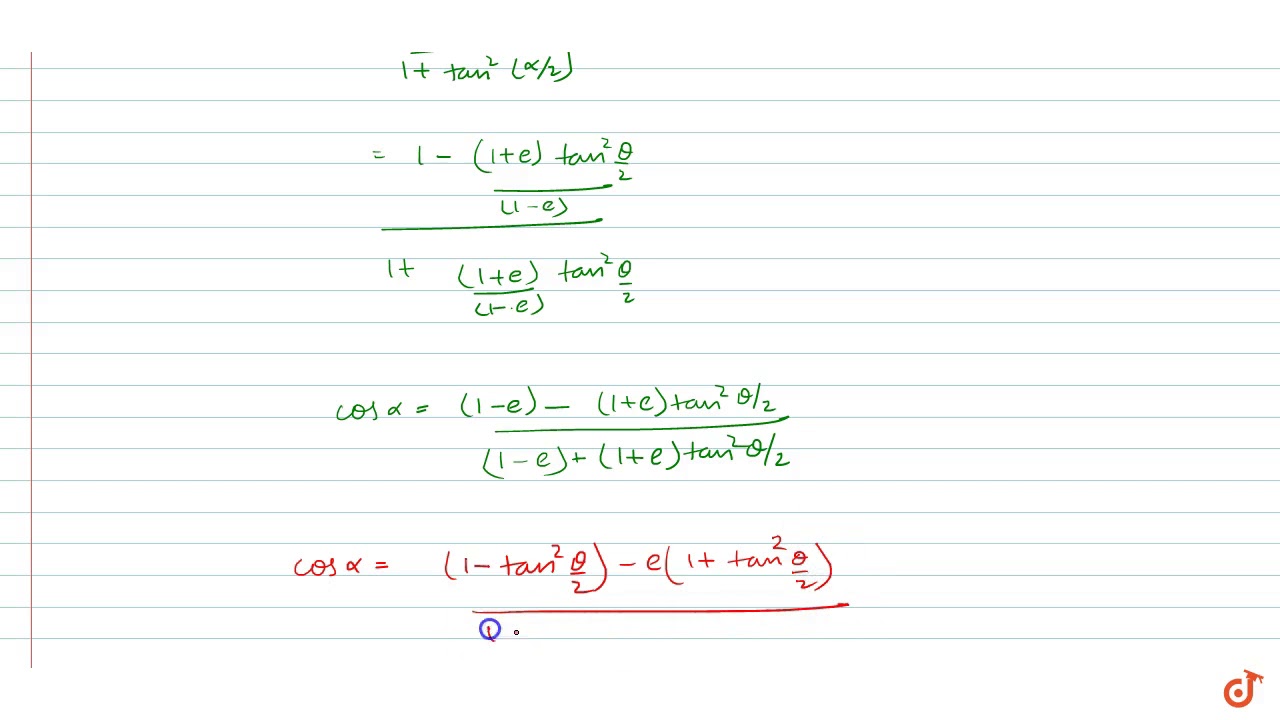 1+ tan² (α/2)
= 1 - (1+e) tan² θ/2
(1-e)
1+ (1+e) tan² θ/2
(1-e)
cos α = (1-e) - (1+e) tan² θ/2
(1-e) + (1+e) tan² θ/2
cos α = (1- tan² θ/2) - e(1+ tan² θ/2)